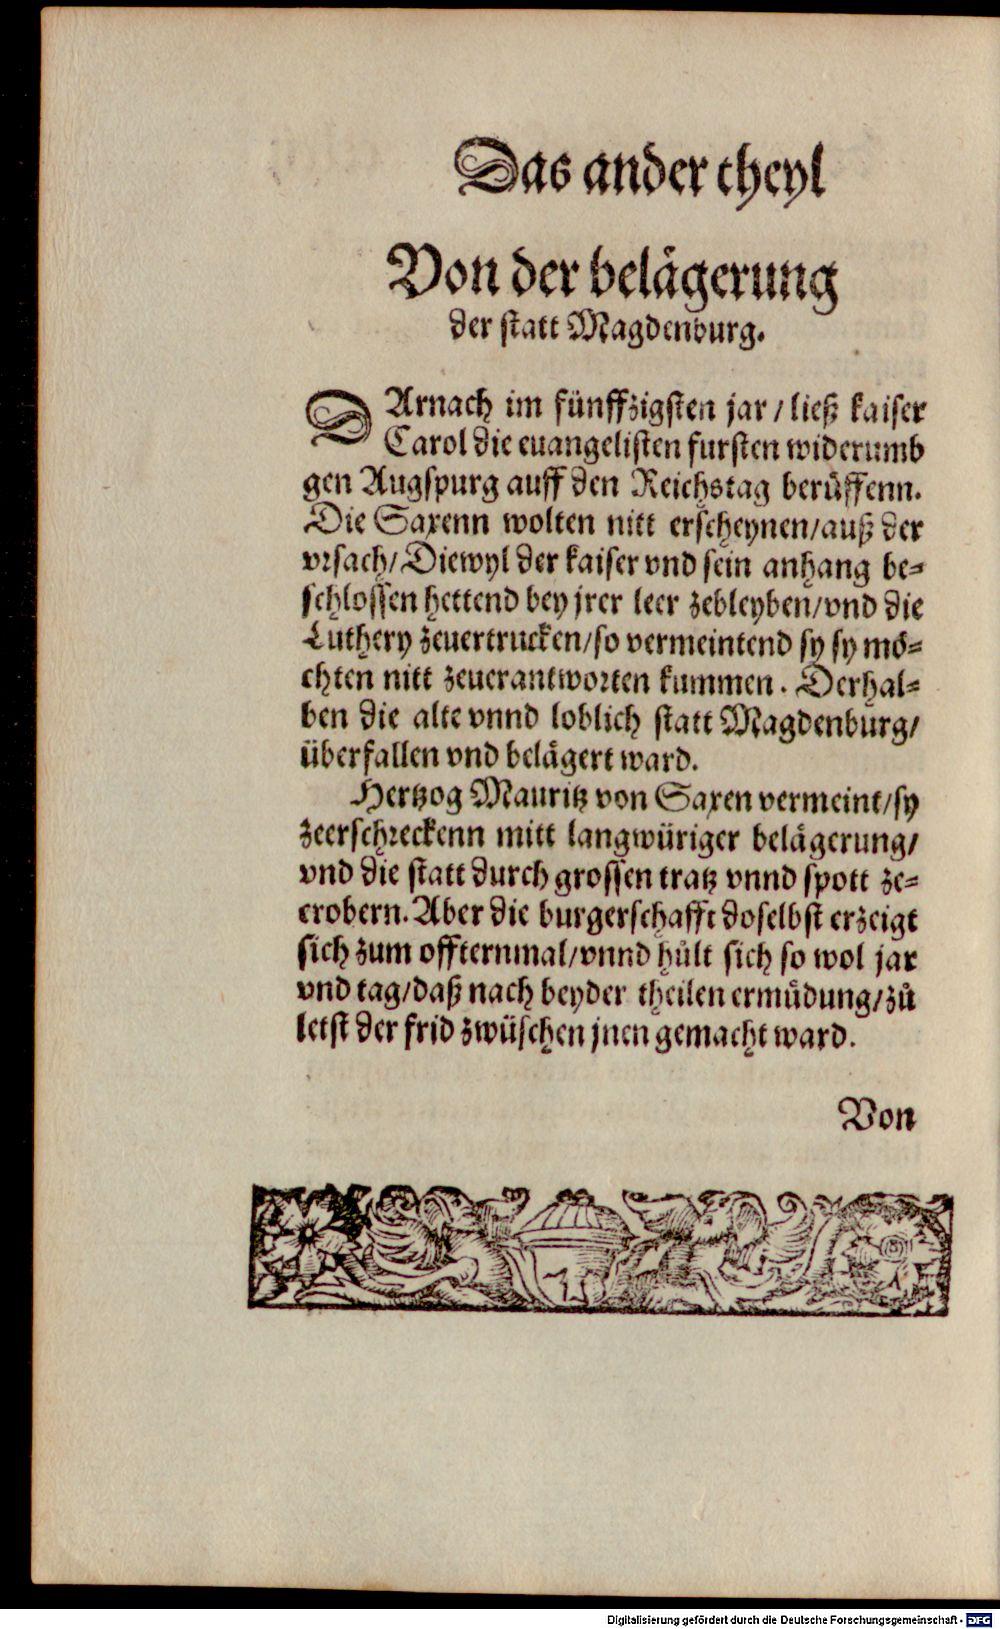 Das ander theyl
Von der belägerung
der statt Magdenburg.
DArnach im fünffzigsten jar / ließ kaiser
Carol die euangelisten fursten widerumb
gen Augspurg auff den Reichstag berüffenn.
Die Saxenn wolten nitt erscheynen/auß der
vrsach/Diewyl der kaiser vnd sein anhang be-
schlossen hettend bey jrer leer zebleyben/vnd die
Luthery zeuertrucken/so vermeintend sy sy mö-
chten nitt zeuerantworten kummen. Derhal-
ben die alte vnnd loblich statt Magdenburg/
überfallen vnd belägert ward.
Hertzog Mauritz von Saxen vermeint/sy
zeerschreckenn mitt langwüriger belägerung/
vnd die statt durch grossen tratz vnnd spott ze-
erobern. Aber die burgerschafft doselbst erzeigt
sich zum offternmal/vnnd hůlt sich so wol jar
vnd tag/daß nach beyder theilen ermüdung/zů
letst der frid zwüschen jnen gemacht ward.
Von
Digitalisierung gefördert durch die Deutsche Forschungsgemeinschaft - DFG